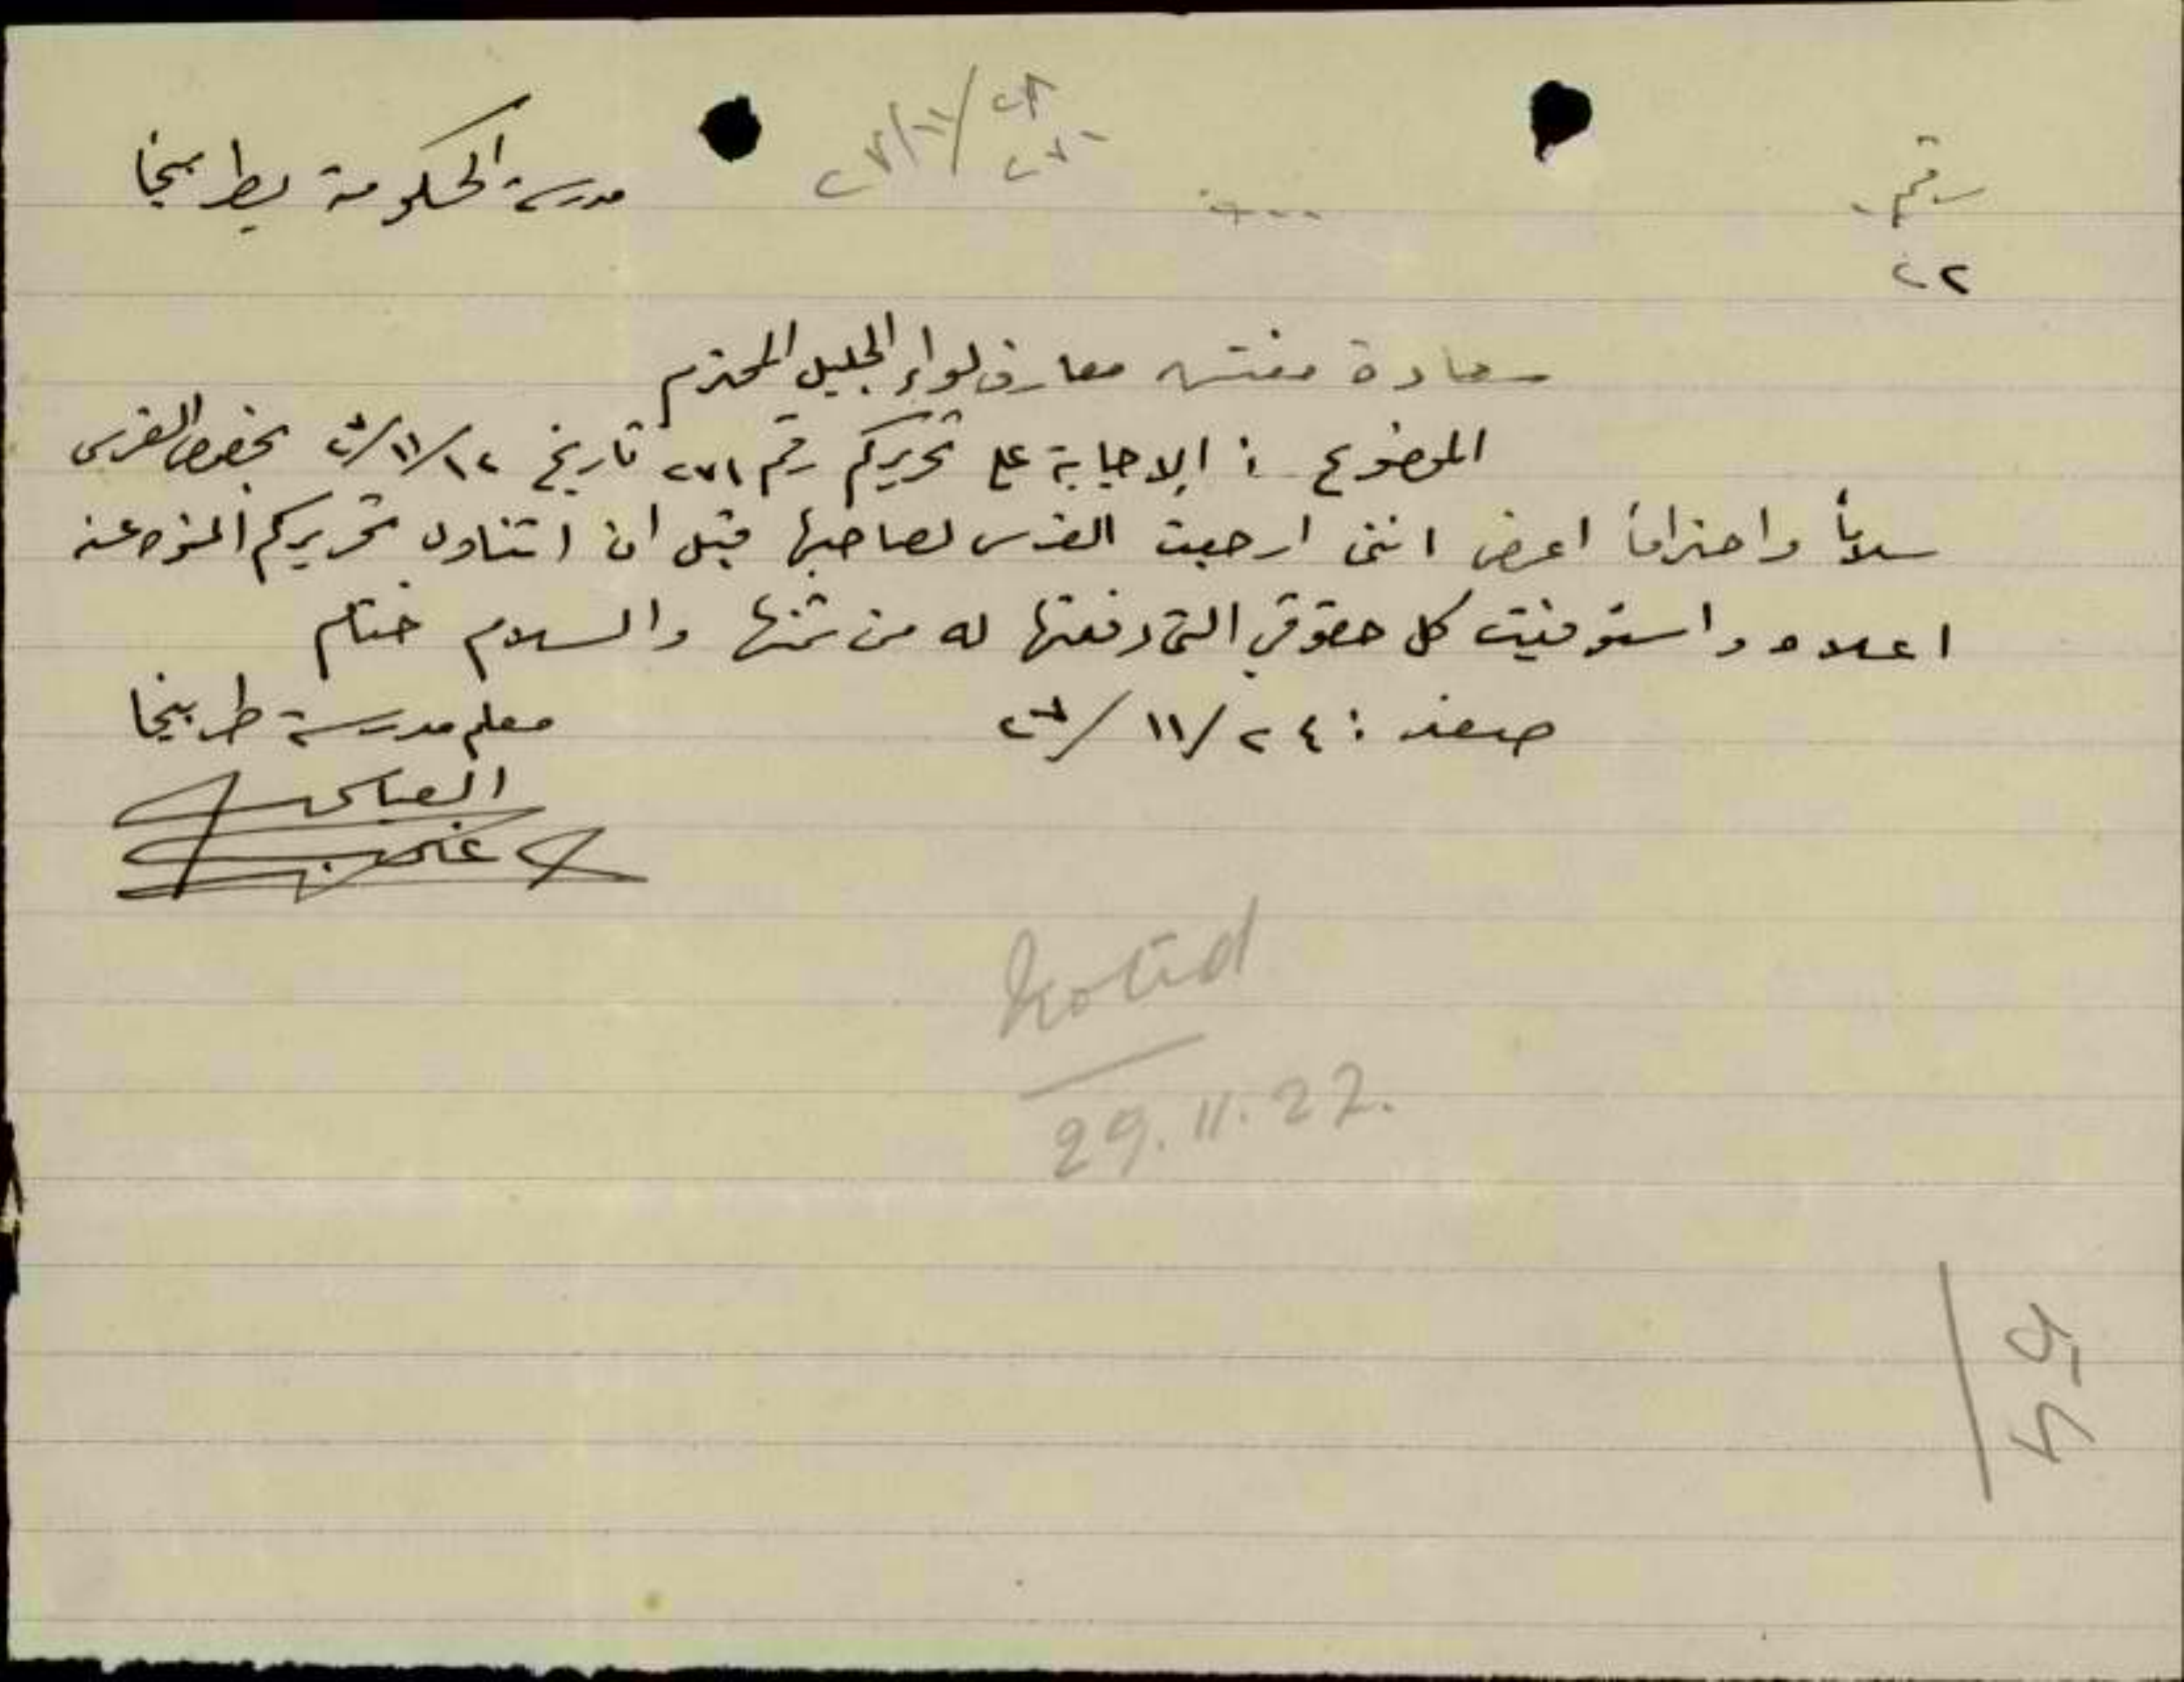 رقم
٢٢
مدرسة الحكومة بطربيخا
٢٧/١١/٢٨
٢٧١
سعادة مفتش معارف لواء الجليل المحترم
الموضوع : الاجابة على تحريركم رقم ٢٧١ تاريخ ١٢/١١/٢٧ بخصوص الفرس
سلاماً واحتراماً اعرض انني ارجعت الفرس لصاحبها قبل ان اتناول تحريركم المنوه عنه
اعلاه واستوفيت كل حقوقي التي دفعتها له من ثمنها والسلام ختام
صفد : ٢٤/١١/٢٧
معلم مدرسة طربيخا
noted
29.11.27.
54